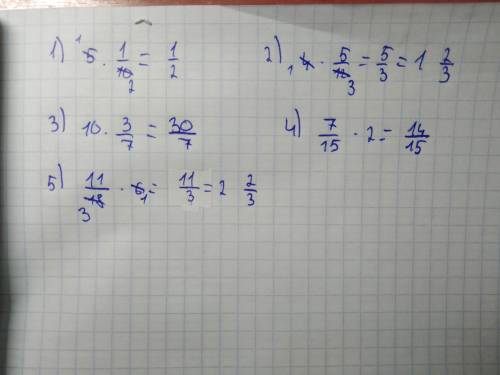 1) 5 · 1/10 = 1/2
2) 4 · 5/12 = 5/3 = 1 2/3
3) 10 · 3/7 = 30/7
4) 7/15 · 2 = 14/15
5) 11/18 · 6 = 11/3 = 2 2/3